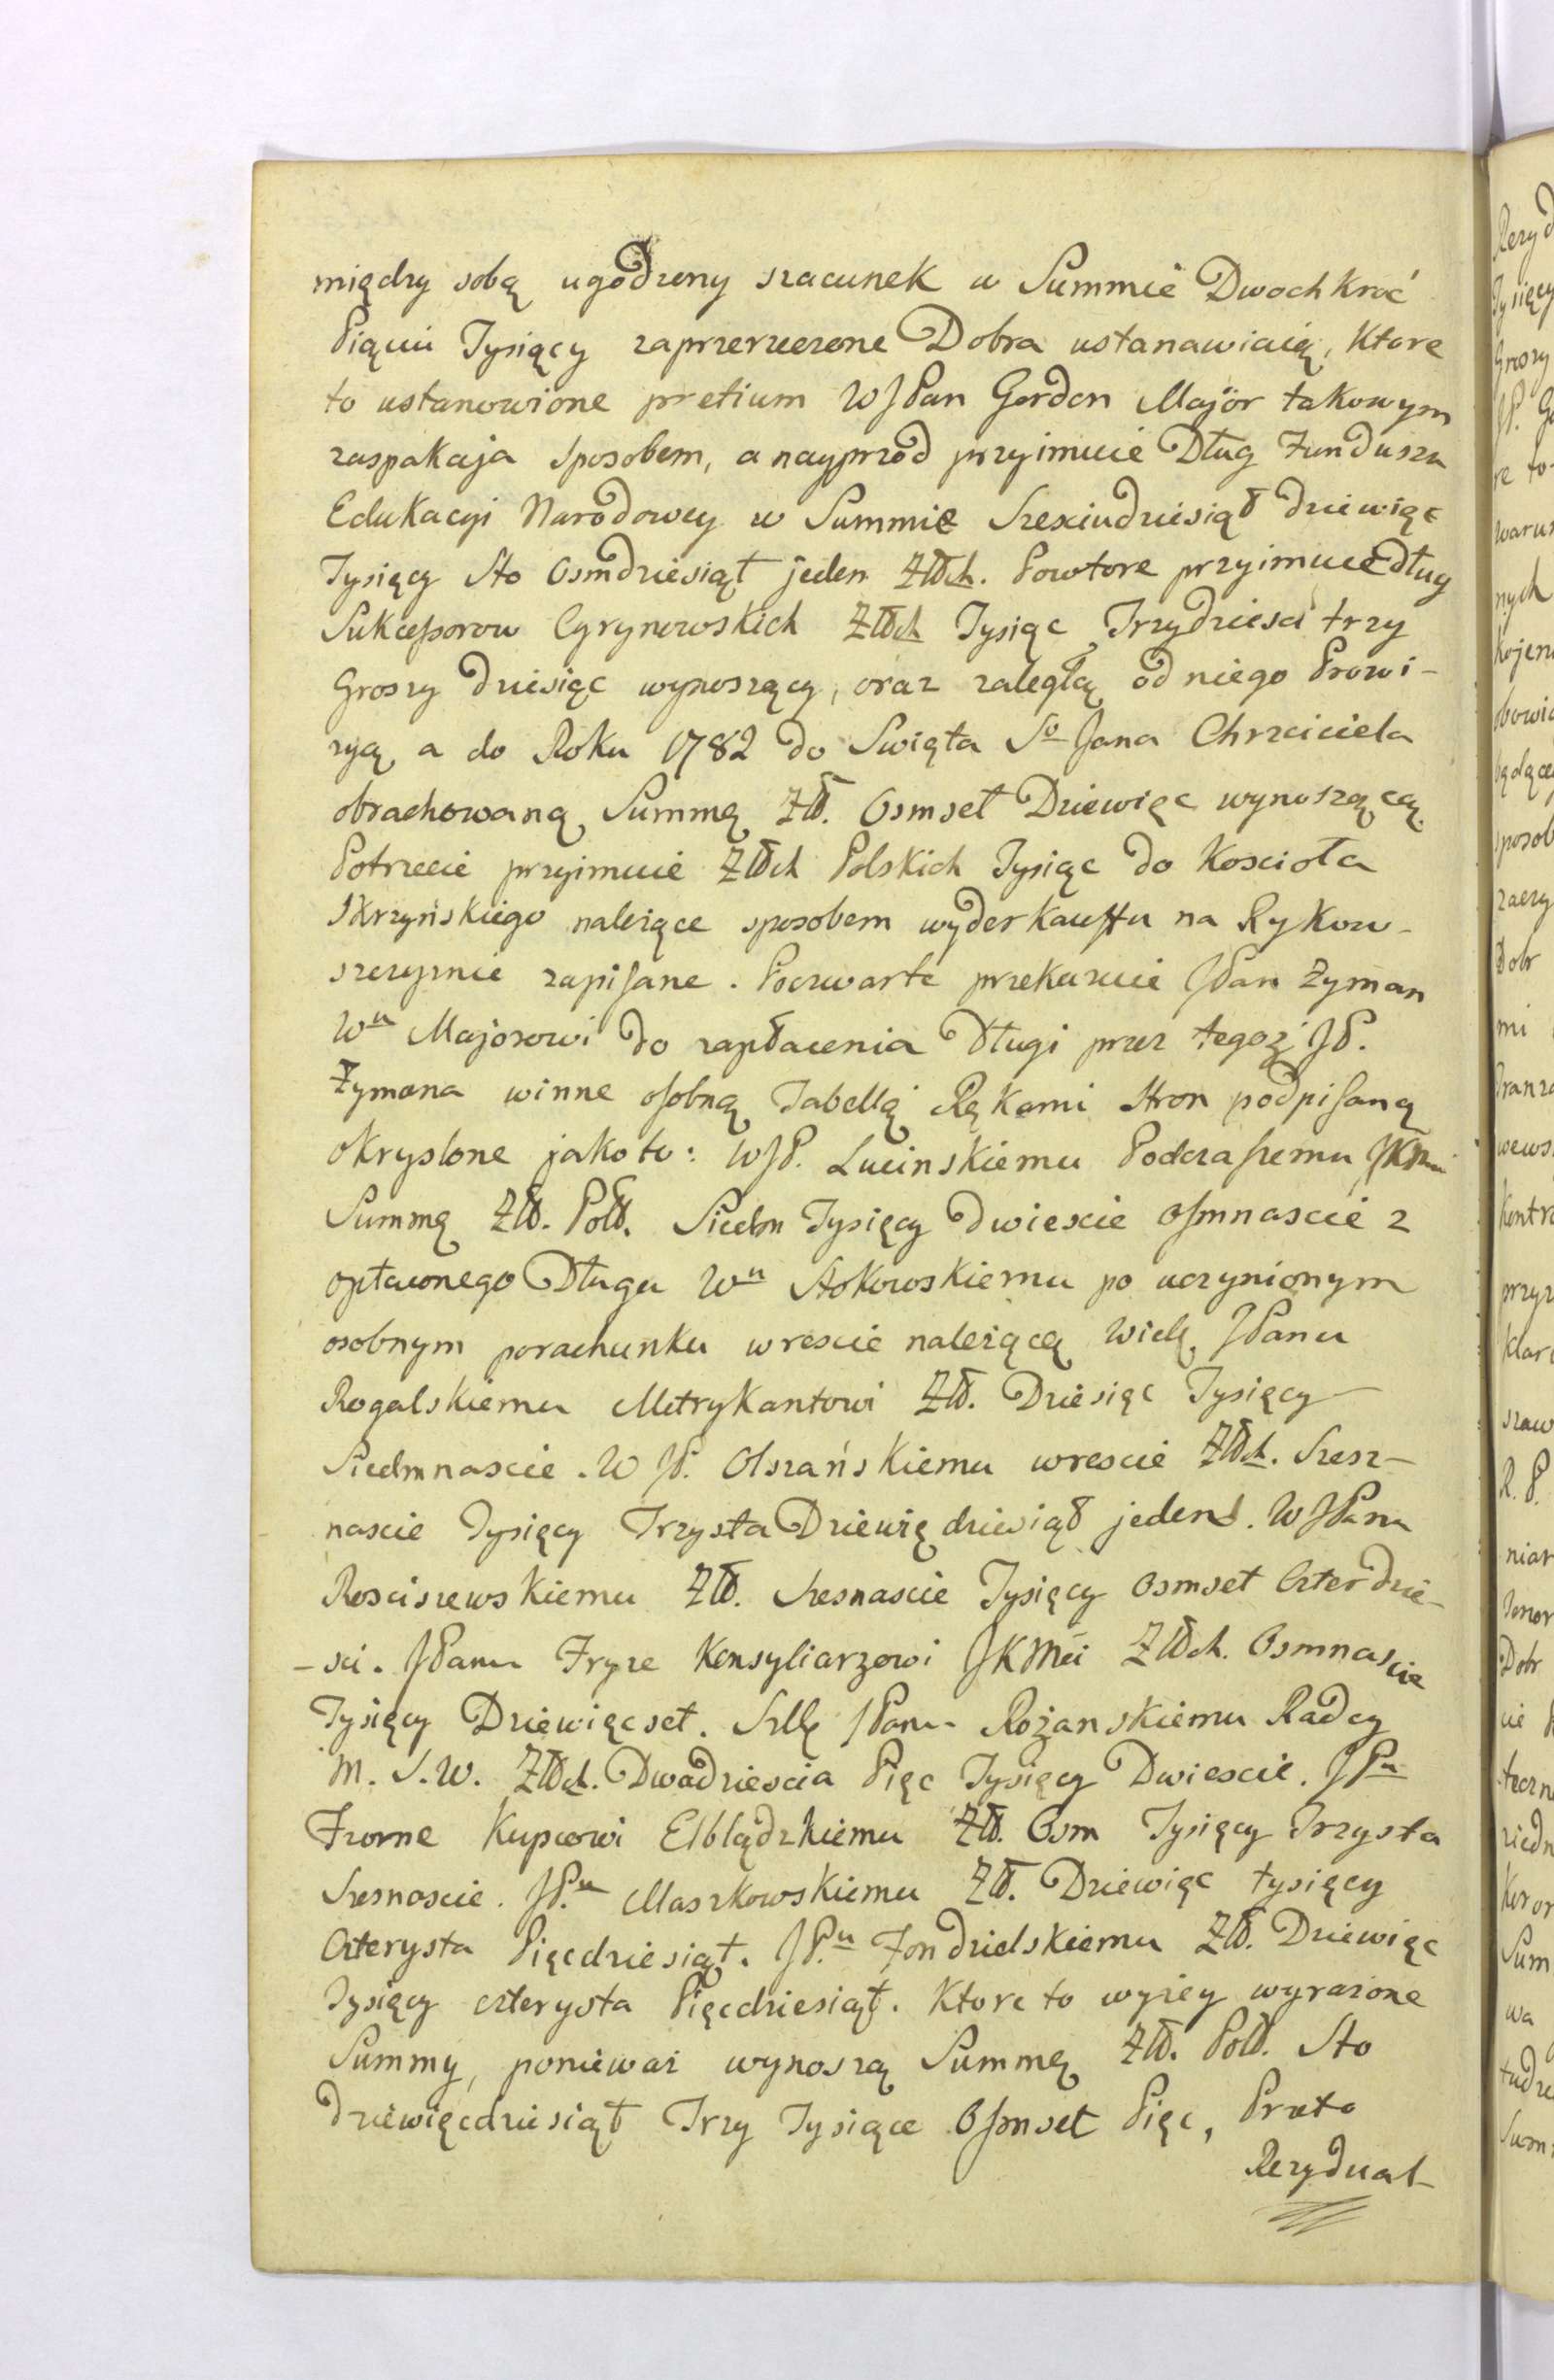 między sobą ugodzony szacunek w Summie Dwoch Kroć
Pięciu Tysięcy zaprzerzeczone Dobra ustanawiaią, Ktore
to ustanowione pretium WJPan Gordon Major takowym
zaspakaja sposobem, a nayprzod przyimuie Dług Funduszu
Edukacyi Narodowey w Summie Szesciudziesiąt dziewięc
Tysięcy Sto Osmdziesiąt jeden Złłch. Powtore przyimuie dług
Sukcessorow Cyrynowskich Złłch Tysiąc Trzydziesci trzy
Groszy dziesięc wynoszący, oraz zaległą od niego Prowi-
zyą a do Roku 1782 do Swięta So Jana Chrzciciela
obrachowaną Summę Złł. Osmset Dziewięc wynoszącą.
Potrzecie przyimuie Złłch Polskich Tysiąc do Koscioła
Skrzyńskiego należące sposobem wyderkauffu na Rykow-
szczyznie zapisane. Poczwarte przekazuie JPan Zyman
Wu Majorowi do zapłacenia Długi przez tegoż JP.
Zymana winne osobną Tabellą Rękami Stron podpisaną
okryslone jako to: WJP. Lucinskiemu Podczaszemu JKMci
Summę Złł. Poll. Siedm Tysięcy dwiescie osmnascie z
opłaconego Długu Wu Stokowskiemu po uczynionym
osobnym porachunku wrescie należącą Wielę JPanu
Rogalskiemu Metrykantowi Złł. Dziesięc Tysięcy
Siedmnascie. W JP. Olszańskiemu wrescie Złłch. Szesz-
nascie Tysięcy Trzysta Dziewiędziewiąt jeden. WJPanu
Rosciszewskiemu Złł. Szesnascie Tysięcy Osmset Czterdzie-
-sci. JPanu Fryze Konsyliarzowi JKMci Złłch. Osmnascie
Tysięcy Dziewięcset. Szllę JPanu Rożanskiemu Radcy
M. S. W. Złłch. Dwadziescia Pięc Tysięcy Dwiescie. JPu
Fzorne Kupcowi Elblądzkiemu Złł. Osm Tysięcy Trzysta
Szesnoscie. JP.u Maszkowskiemu Złł. Dziewięc tysięcy
Czterysta Pięcdziesiąt. JP.u Fondzielskiemu Złł. Dziewięc
Tysięcy czterysta Pięcdziesiąt. Ktore to wyżey wyrażone
Summy, ponieważ wynoszą Summę Złł. Poll. Sto
dziewięcdziesiąt Trzy Tysiące Osmset Pięc, Przeto
Rezyduał